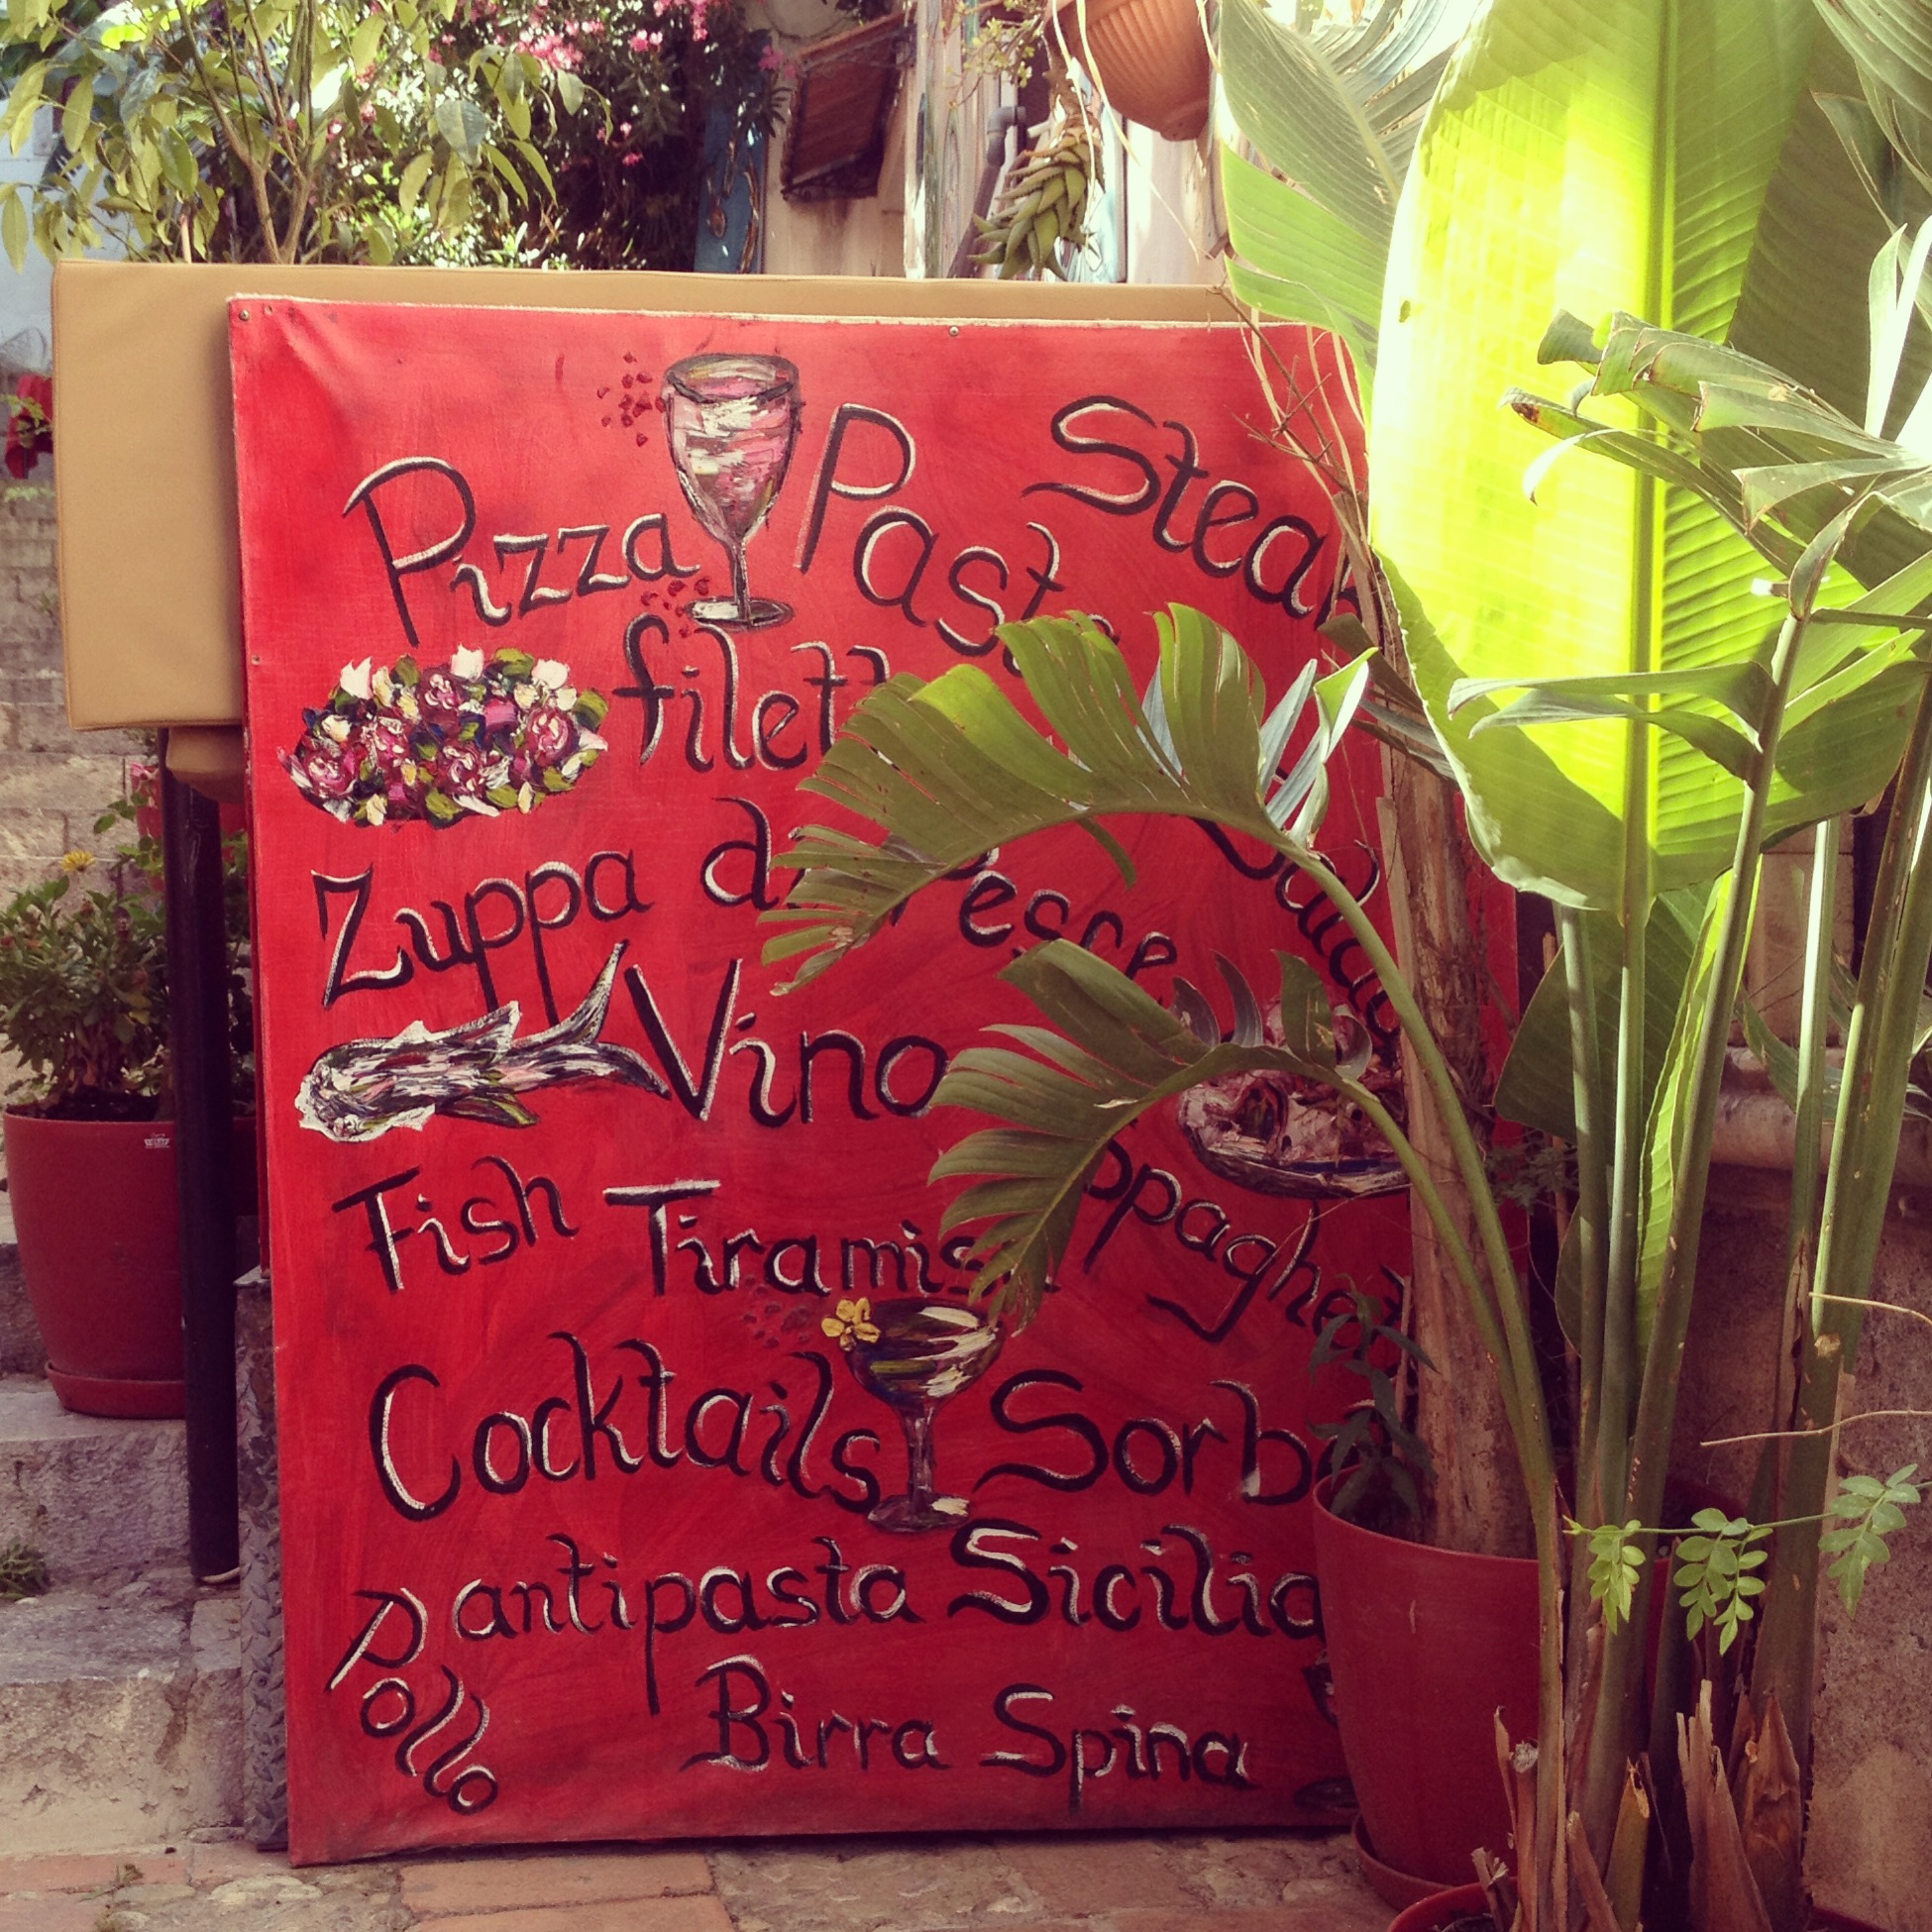 Pizza Past Steak
filett
Zuppa di Pesce Salad
Vino
Fish Tiramisu Spaghet
Cocktails Sorbe
antipasta Sicilia
Pollo
Birra Spina